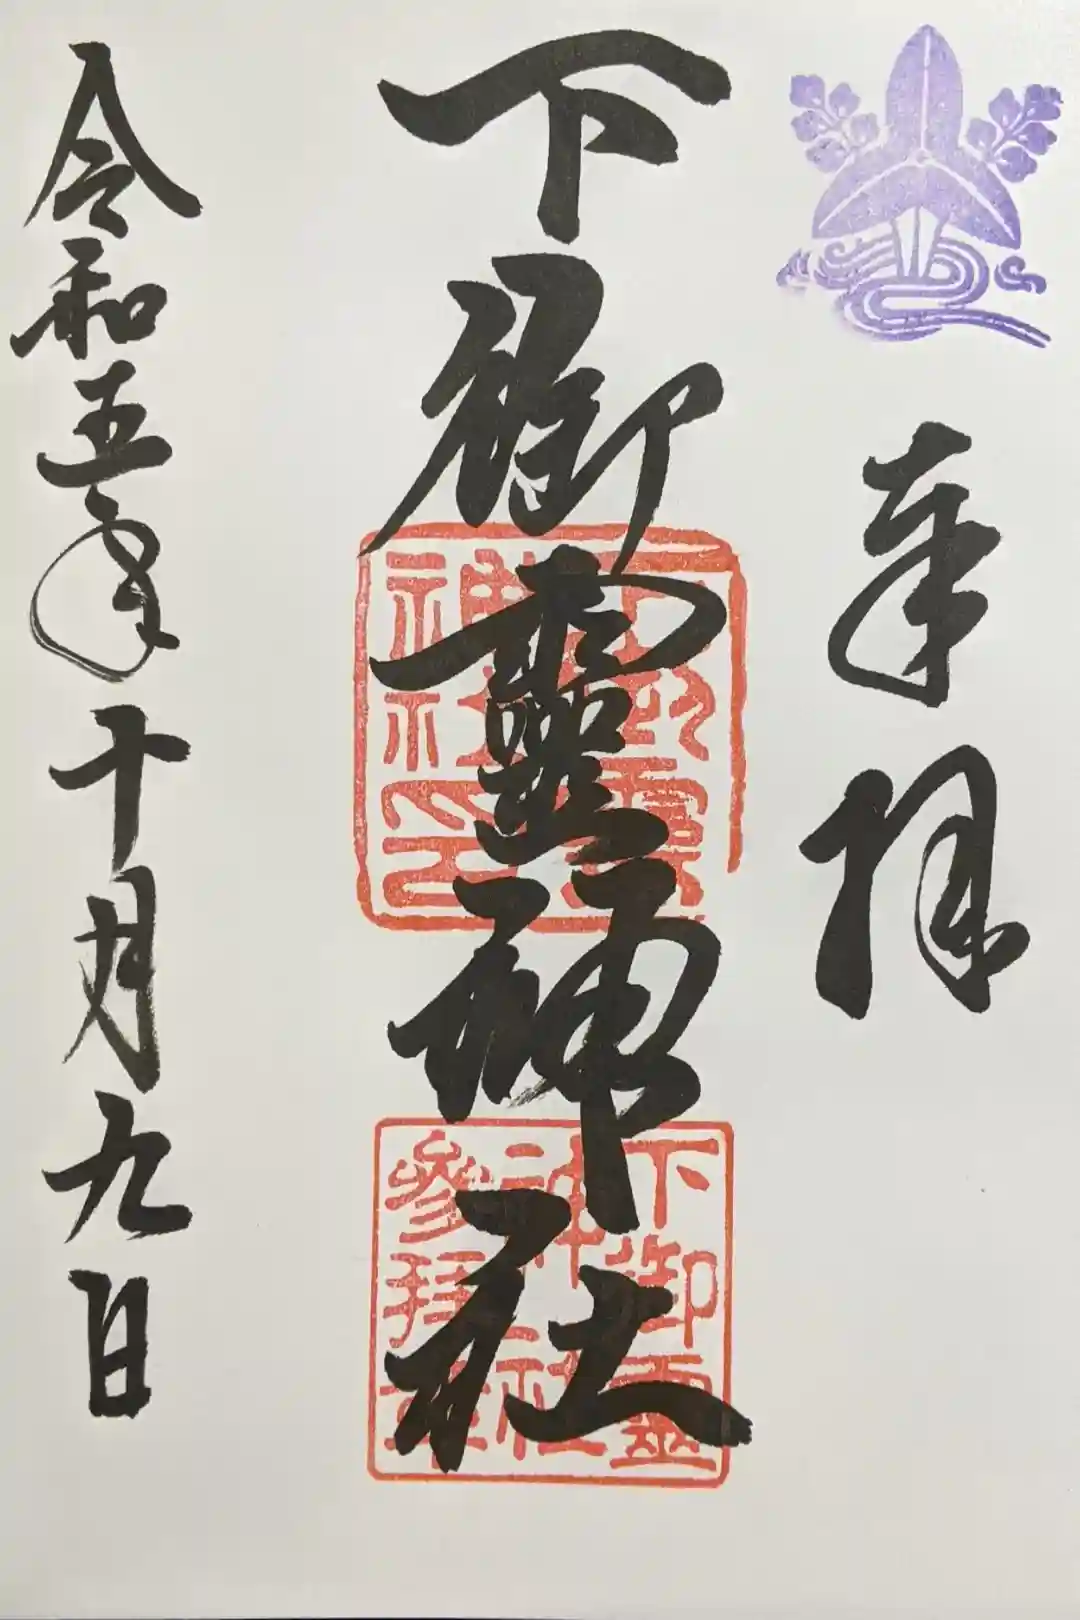 奉拝
下御靈神社
下御霊神社印
下御霊神社参拝章
令和五年十月九日